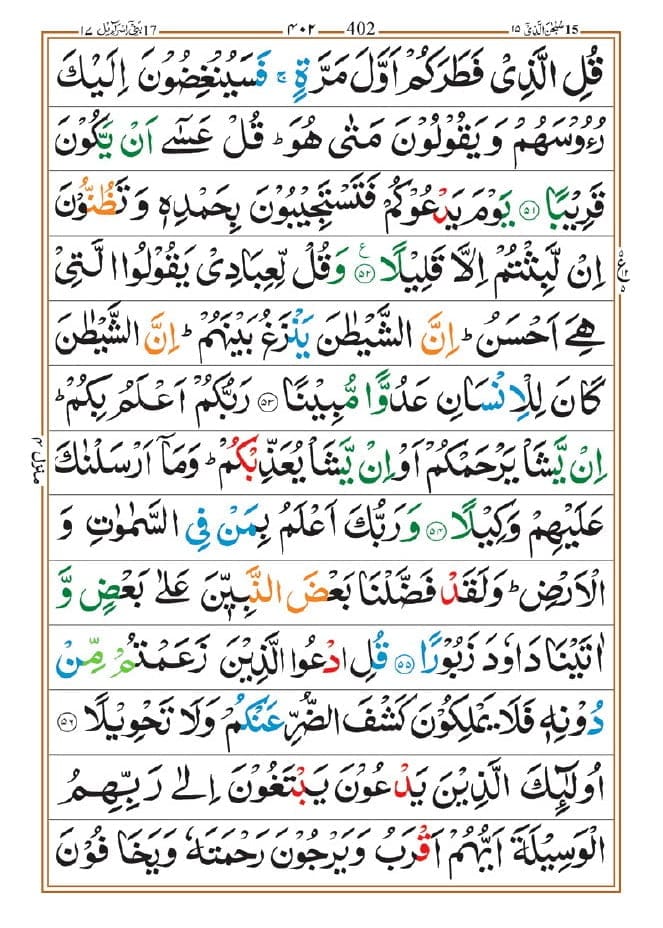 15 سُبْحٰنَ الَّذِیْ ١٥ 402 ۴۰۲ 17 بَنِیْۤ اِسْرَآءِیْل ١٧
قُلِ الَّذِیْ فَطَرَكُمْ اَوَّلَ مَرَّةٍ ۚ فَسَیُنْغِضُوْنَ اِلَیْكَ
رُءُوْسَهُمْ وَ یَقُوْلُوْنَ مَتٰی هُوَ ؕ قُلْ عَسٰۤی اَنْ یَّكُوْنَ
قَرِیْبًا ۵۱ یَوْمَ یَدْعُوْكُمْ فَتَسْتَجِیْبُوْنَ بِحَمْدِهٖ وَ تَظُنُّوْنَ
اِنْ لَّبِثْتُمْ اِلَّا قَلِیْلًا ۵۲ ع وَ قُلْ لِّعِبَادِیْ یَقُوْلُوا الَّتِیْ
هِیَ اَحْسَنُ ؕ اِنَّ الشَّیْطٰنَ یَنْزَغُ بَیْنَهُمْ ؕ اِنَّ الشَّیْطٰنَ
كَانَ لِلْاِنْسَانِ عَدُوًّا مُّبِیْنًا ۵۳ رَبُّكُمْ اَعْلَمُ بِكُمْ ؕ
اِنْ یَّشَاْ یَرْحَمْكُمْ اَوْ اِنْ یَّشَاْ یُعَذِّبْكُمْ ؕ وَ مَاۤ اَرْسَلْنٰكَ
عَلَیْهِمْ وَكِیْلًا ۵۴ وَ رَبُّكَ اَعْلَمُ بِمَنْ فِی السَّمٰوٰتِ وَ
الْاَرْضِ ؕ وَ لَقَدْ فَضَّلْنَا بَعْضَ النَّبِیّٖنَ عَلٰی بَعْضٍ وَّ
اٰتَیْنَا دَاوٗدَ زَبُوْرًا ۵۵ قُلِ ادْعُوا الَّذِیْنَ زَعَمْتُمْ مِّنْ
دُوْنِهٖ فَلَا یَمْلِكُوْنَ كَشْفَ الضُّرِّ عَنْكُمْ وَ لَا تَحْوِیْلًا ۵۶
اُولٰٓئِكَ الَّذِیْنَ یَدْعُوْنَ یَبْتَغُوْنَ اِلٰی رَبِّهِمُ
الْوَسِیْلَةَ اَیُّهُمْ اَقْرَبُ وَ یَرْجُوْنَ رَحْمَتَهٗ وَ یَخَافُوْنَ
منزل ۴